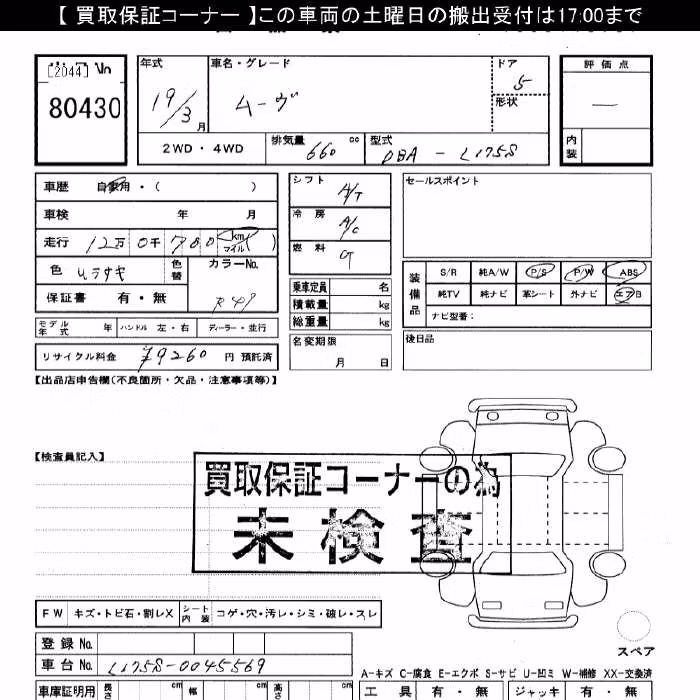 【 買取保証コーナー 】この車両の土曜日の搬出受付は17:00まで
[2044] No
80430
年式 19/3 月
車名・グレード ムーヴ
ドア 5
形状
評価点 —
内装
2WD・4WD
排気量 660 cc
型式 DBA - L175S
車歴 自家用・( )
車検 年 月
走行 12万0千780 km マイル( )
色 ムラサキ 色替
カラーNo. R49
保証書 有・無
モデル年式 年 ハンドル 左・右 ディーラー・並行
リサイクル料金 ¥9260 円 預託済
シフト A/T
冷房 A/C
燃料
乗車定員 名
積載量 kg
総重量 kg
名変期限 月 日
セールスポイント
装備品
S/R 純A/W P/S P/W ABS
純TV 純ナビ 革シート 外ナビ エアB
ナビ型番:
後日品
【出品店申告欄(不良箇所・欠品・注意事項等)】
【検査員記入】
買取保証コーナーの為
未検査
FW キズ・トビ石・割レX シート内装 コゲ・穴・汚レ・シミ・破レ・スレ
スペア
登録No.
車台No. L175S-0045569
A-キズ C-腐食 E-エクボ S-サビ U-凹ミ W-補修 XX-交換済
車庫証明用 長さ cm 幅 cm 高さ cm
工具 有・無 ジャッキ 有・無